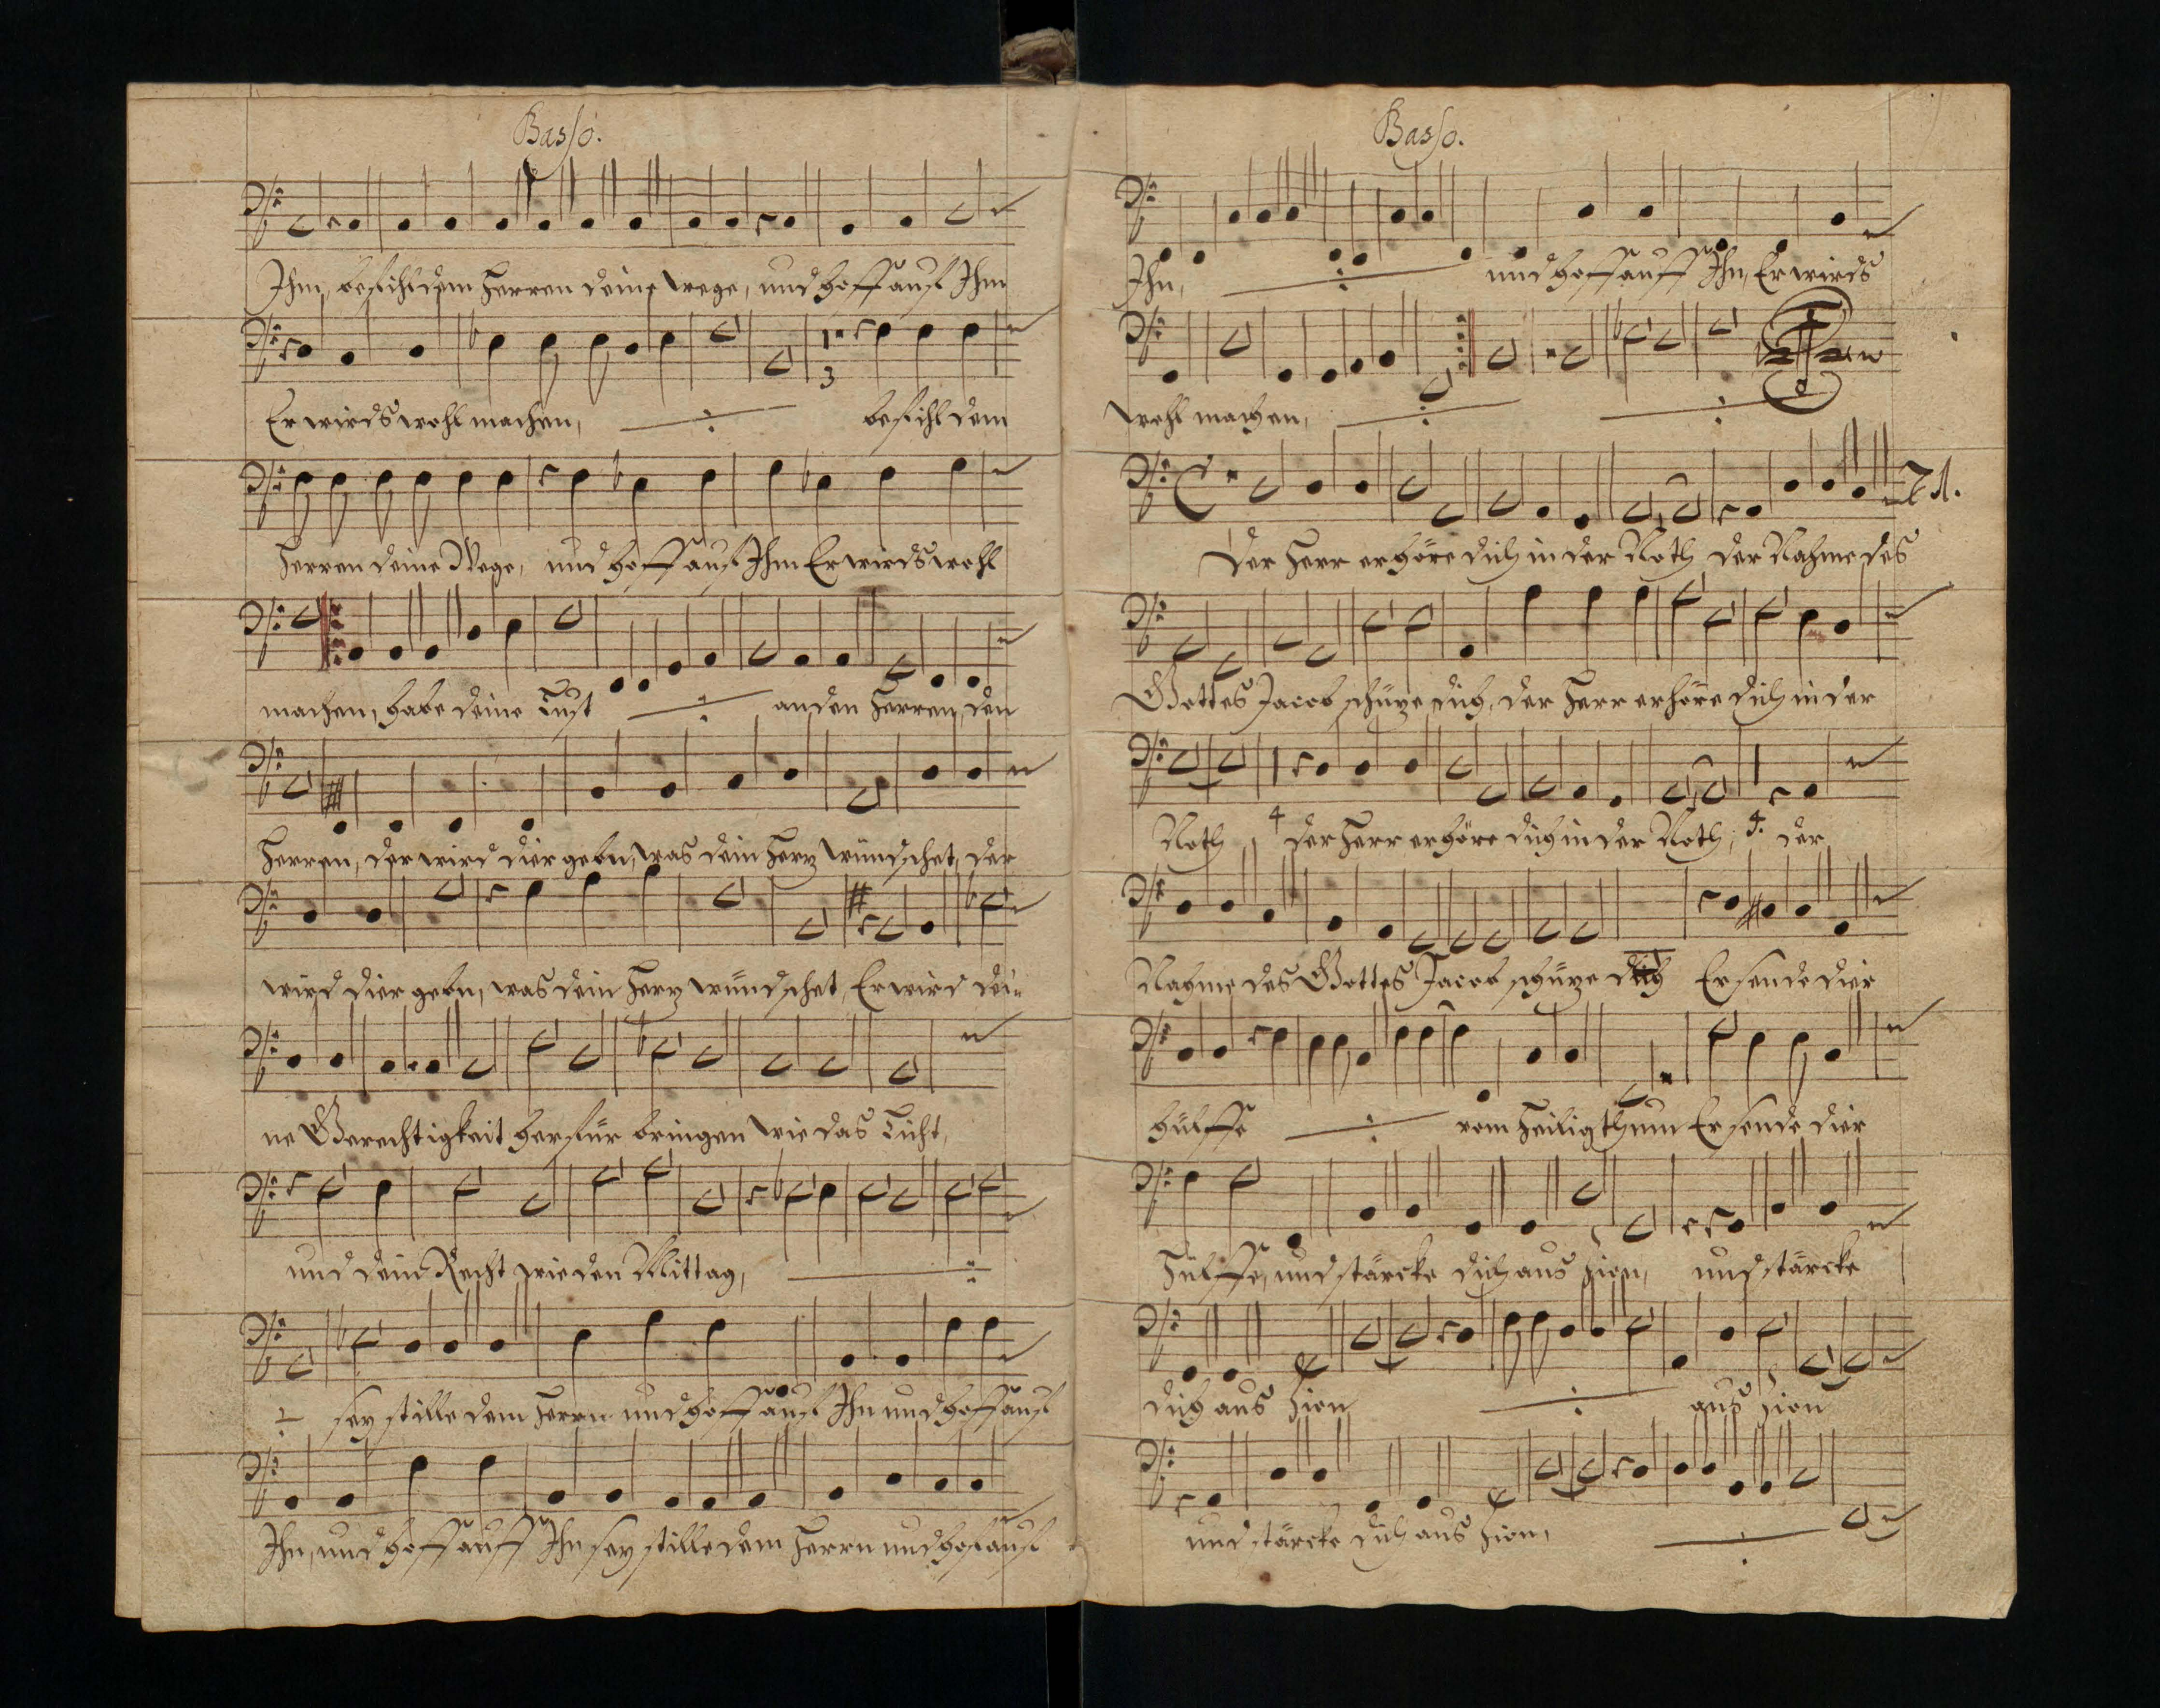 Basso.
Ihm, befihl dem Herren deine wege, und hoff auf Ihm
Er wirds wohl machen, befihl dem
1.
3
Herren deine Wege, und hoff auf Ihm Er wirds wohl
machen, habe deine Lust an den Herren, den
Herren, der wird dier gebn, was dein Hertz wündschet, der
wird dier gebn, was dein Hertz wündschet, Er wird dei-
ne Gerechtigkeit herfür bringen wie das Licht,
und dein Recht wie den Mittag,
sey stille dem Herrn und hoff auf Ihn und hoff auf
Ihn, und hoff auff Ihn sey stille dem Herrn und hof auf
Basso.
Ihn, und hoff auff Ihn, Er wirds
wohl machen,
21.
Der Herr erhöre dich in der Noth der Nahme des
Gottes Jacob schütze dich, der Herr erhöre dich in der
Noth, 4 der Herr erhöre dich in der Noth, 4. der
Nahme des Gottes Jacob schütze dich Er sende dier
hülffe vom Heiligthum Er sende dier
Hülffe, und stärcke dich aus Zion, und stärcke
dich aus Zion aus Zion
und stärcke dich aus Zion,